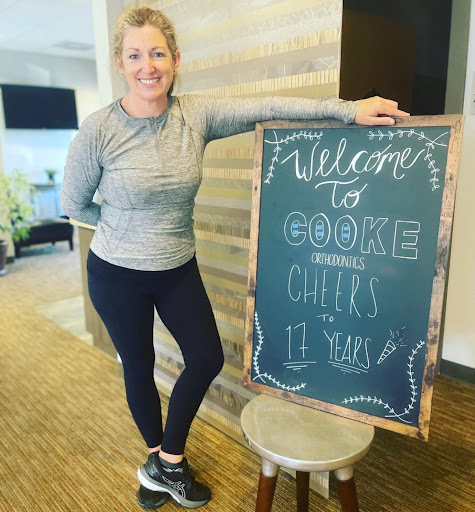 Welcome
To
COOKE
ORTHODONTICS
CHEERS
TO
17 YEARS